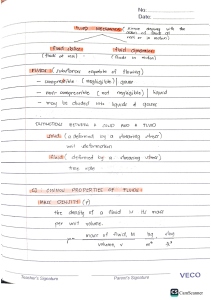 No.
Date:
FLUID MECHANICS science dealing with the
action of fluids at
rest or in motion
fluid statics fluid dynamics
(fluids at rest) (fluids in motion)
FLUIDS (substances capable of flowing)
- compressible (negligible) gases
- non-compressible (not negligible) liquid
- may be divided into liquids & gases
DISTINCTION BETWEEN A SOLID AND A FLUID
solid: (a deformed by a shearing stress)
unit deformation
fluid: (deformed by a shearing stress)
time rate
SIMPLE PROPERTIES OF FLUIDS
MASS DENSITY
the density of a fluid is its mass
per unit volume.
mass of fluid, M kg slug
volume, v m³ ft³
Teacher's Signature Parent's Signature VECO
CS CamScanner